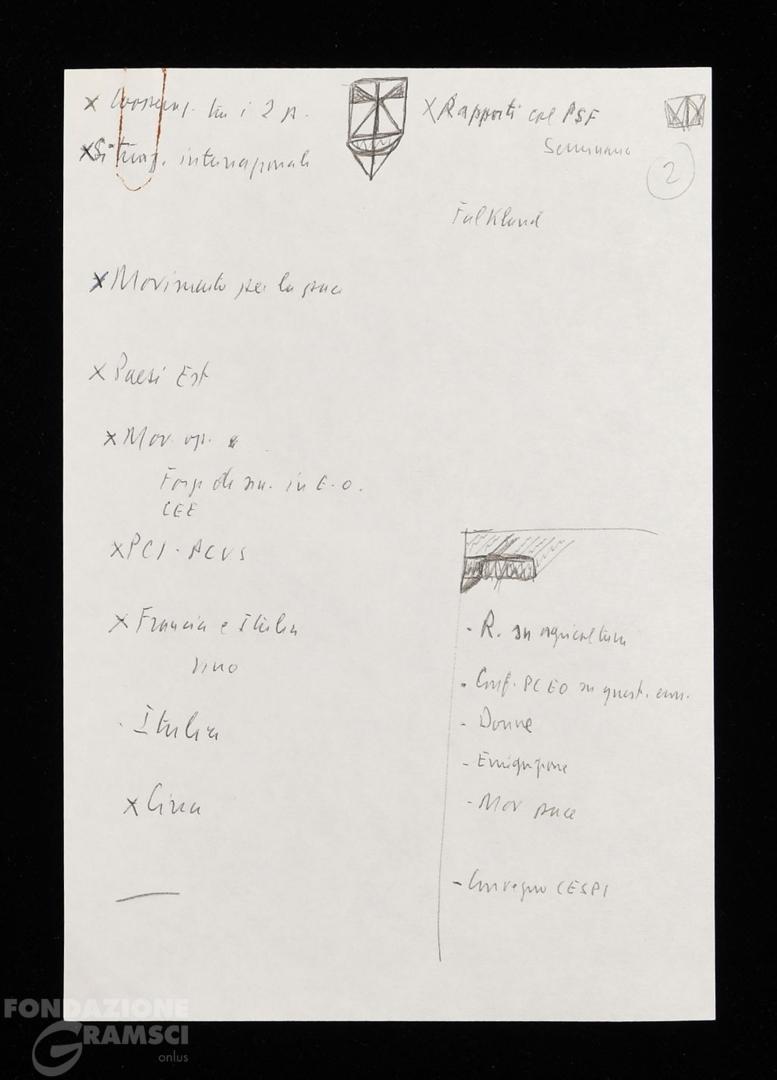 x Convers. tra i 2 p.
x Situaz. internazionale
x Movimento per la pace
x Paesi Est
x Mov. op.
Forze di sin. in E.O.
CEE
x PCI - PCUS
x Francia e Italia
- Italia
x Cina
x Rapporti col PSF
Seminario
2
Falkland
- R. su agricoltura
- Conf. PCEO su quest. econ.
- Donne
- Emigrazione
- Mov pace
- Convegno CESPI
FONDAZIONE
GRAMSCI
onlus